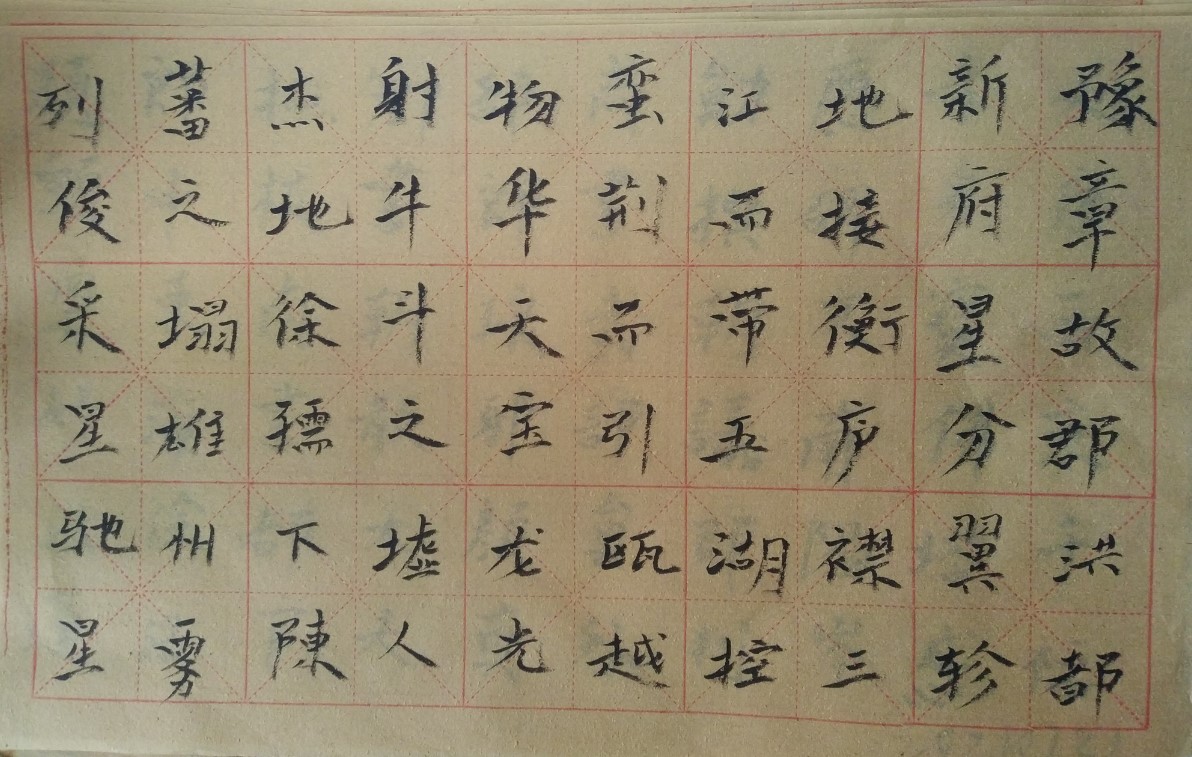 豫章故郡洪都
新府星分翼轸
地接衡庐襟三
江而带五湖控
蛮荆而引瓯越
物华天宝龙光
射牛斗之墟人
杰地徐孺下陳
蕃之塌雄州雾
列俊采星驰星